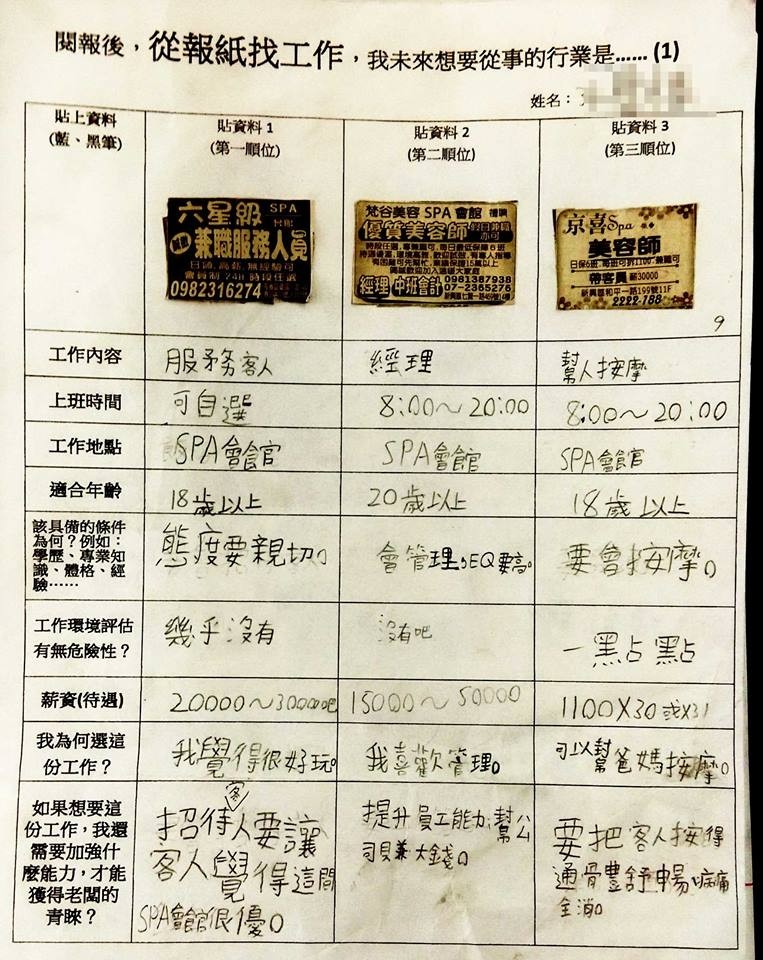 閱報後，從報紙找工作，我未來想要從事的行業是……(1)
姓名：
貼上資料
(藍、黑筆)
貼資料 1
(第一順位)
貼資料 2
(第二順位)
貼資料 3
(第三順位)
六星級 SPA
兼職服務人員
日領,高薪,無經驗可
會員制 24H 時段任選
0982316274
梵谷美容 SPA 會館
優質美容師
經理 中班會計
0981387938
07-2365276
京喜Spa
美容師
日保6班,每班可拆1100.兼職可
帶客員 薪30000
新興區和平一路199號11F
2222-188
9
工作內容
服務客人
經理
幫人按摩
上班時間
可自選
8:00～20:00
8:00～20:00
工作地點
SPA會館官
SPA會館
SPA會館官
適合年齡
18歲以上
20歲以上
18歲以上
該具備的條件
為何？例如：
學歷、專業知
識、體格、經
驗……
態度要親切。
會管理,EQ要高。
要會按摩。
工作環境評估
有無危險性？
幾乎沒有
沒有吧
一點點
薪資(待遇)
20000～30000吧
15000～50000
1100X30或X31
我為何選這
份工作？
我覺得很好玩。
我喜歡管理。
可以幫爸媽按摩。
如果想要這
份工作，我還
需要加強什
麼能力，才能
獲得老闆的
青睞？
招待客人要讓
客人覺得這間
SPA會館很優。
提升員工能力,幫公
司賺大錢。
要把客人按得
通骨豐舒暢,病痛
全消。